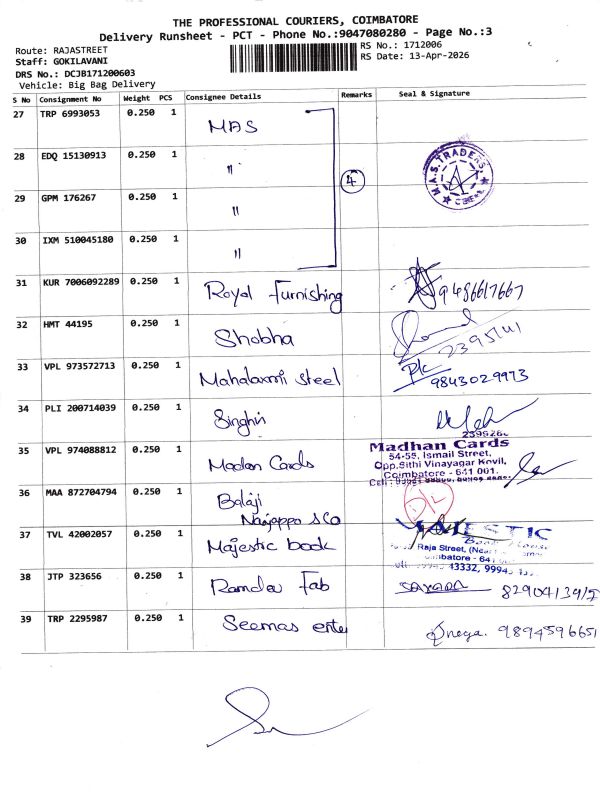 THE PROFESSIONAL COURIERS, COIMBATORE
Delivery Runsheet - PCT - Phone No.:9047080280 - Page No.:3
Route: RAJASTREET
Staff: GOKILAVANI
DRS No.: DCJB171200603
Vehicle: Big Bag Delivery
RS No.: 1712006
RS Date: 13-Apr-2026
S No Consignment No Weight PCS Consignee Details Remarks Seal & Signature
27 TRP 6993053 0.250 1 MAS
28 EDQ 15130913 0.250 1 "
M.A.S. TRADERS
4
29 GPM 176267 0.250 1 "
30 IXM 510045180 0.250 1 "
31 KUR 7006092289 0.250 1 Royal Furnishing 9486617667
32 HMT 44195 0.250 1 Shobha 2395141
33 VPL 973572713 0.250 1 Mahalaxmi Steel 9843029973
34 PLI 200714039 0.250 1 Singhvi
35 VPL 974088812 0.250 1 Madan Cards
Madhan Cards
54-55, Ismail Street,
Opp.Sithi Vinayagar Kovil,
Coimbatore - 641 001.
36 MAA 872704794 0.250 1 Balaji
37 TVL 42002057 0.250 1 Majestic book
MAJESTIC
Raja Street,
38 JTP 323656 0.250 1 Ramdev Fab
39 TRP 2295987 0.250 1 Seemas ente 9894596651